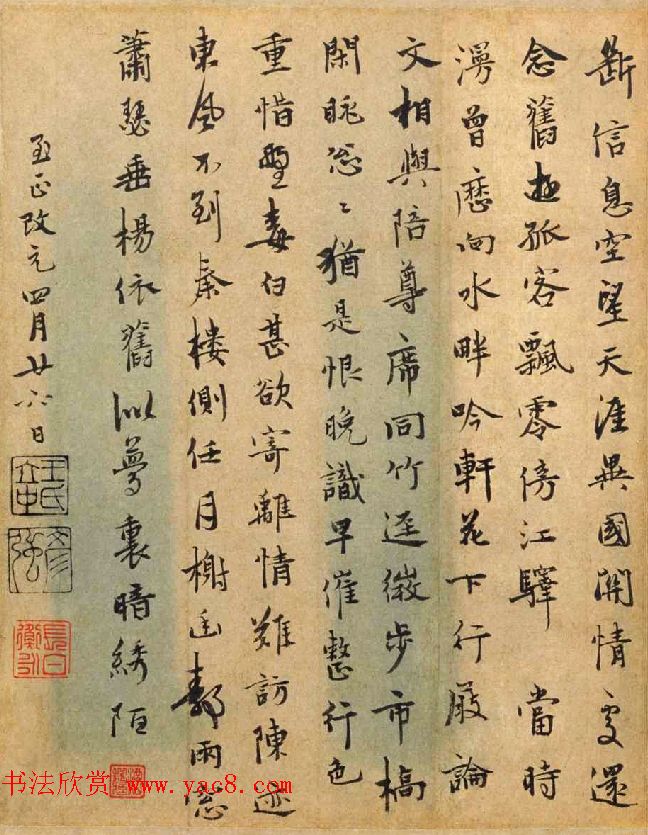 斷信息空望天涯異國關情處還
念舊極孤客飄零傍江驛 當時
漫曾歷向水畔吟軒花下行嚴論
文相與陪尊席同竹逕微步市
閑眺怱〻猶是恨晚識早催整行色
重惜白甚欲寄離情難訪陳迹
東風不到秦樓側任月榭幽雨窓
蕭瑟垂楊依舊似夢裏暗綉陌
至正改元四月廿六日
王氏立中
彥強
书法欣赏 www.yac8.com